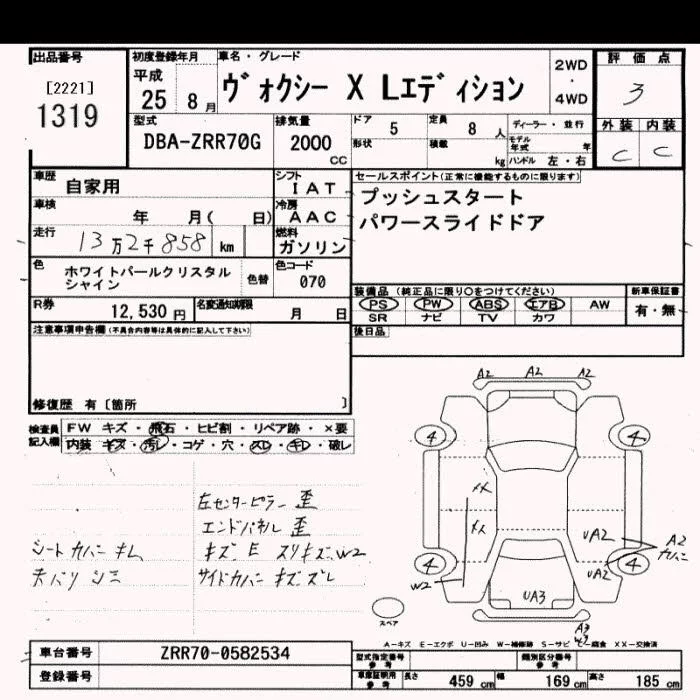 出品番号
[2221]
1319
初度登録年月
平成
25 8 月
車名・グレード
ヴォクシー X Lエディション
2WD
・
4WD
評価点
3
外装 内装
C C
型式
DBA-ZRR70G
排気量
2000
CC
ドア 5
定員 8 人
形状
積載 kg
ディーラー・並行
モデル年式 年
ハンドル 左・右
車歴 自家用
車検 年 月( 日)
走行 13万2千858 km
シフト
IAT
冷房
AAC
燃料
ガソリン
セールスポイント(正常に機能するものに限ります)
プッシュスタート
パワースライドドア
色
ホワイトパールクリスタル
シャイン
色替
色コード
070
R券 12,530 円
名変通知期限 月 日
装備品(純正品に限り○をつけてください)
PS PW ABS エアB AW
SR ナビ TV カワ
新車保証書
有・無
後日品
注意事項申告欄(不具合内容等は具体的に記入して下さい)
修復歴 有〔箇所 〕
検査員
記入欄
FW キズ・飛石・ヒビ割・リペア跡・×要
内装 キズ・汚レ・コゲ・穴・スレ・キレ・破レ
左センターピラー 歪
エンドパネル 歪
シートカバー キレ
キズ E スリキズ W2
サイドカバー キズ ズレ
A2 A2 A2
4 4
XX
XX
UA2
A2
カバー
UA2
4 4
W2
UA3
A3
W2
スペア
A−キズ E−エクボ U−凹み W−補修跡 S−サビ C−腐食 XX−交換済
車台番号 ZRR70-0582534
登録番号
型式指定番号
参考
類別区分番号
参考
車庫証明用
参考
長さ 459 cm 幅 169 cm 高さ 185 cm